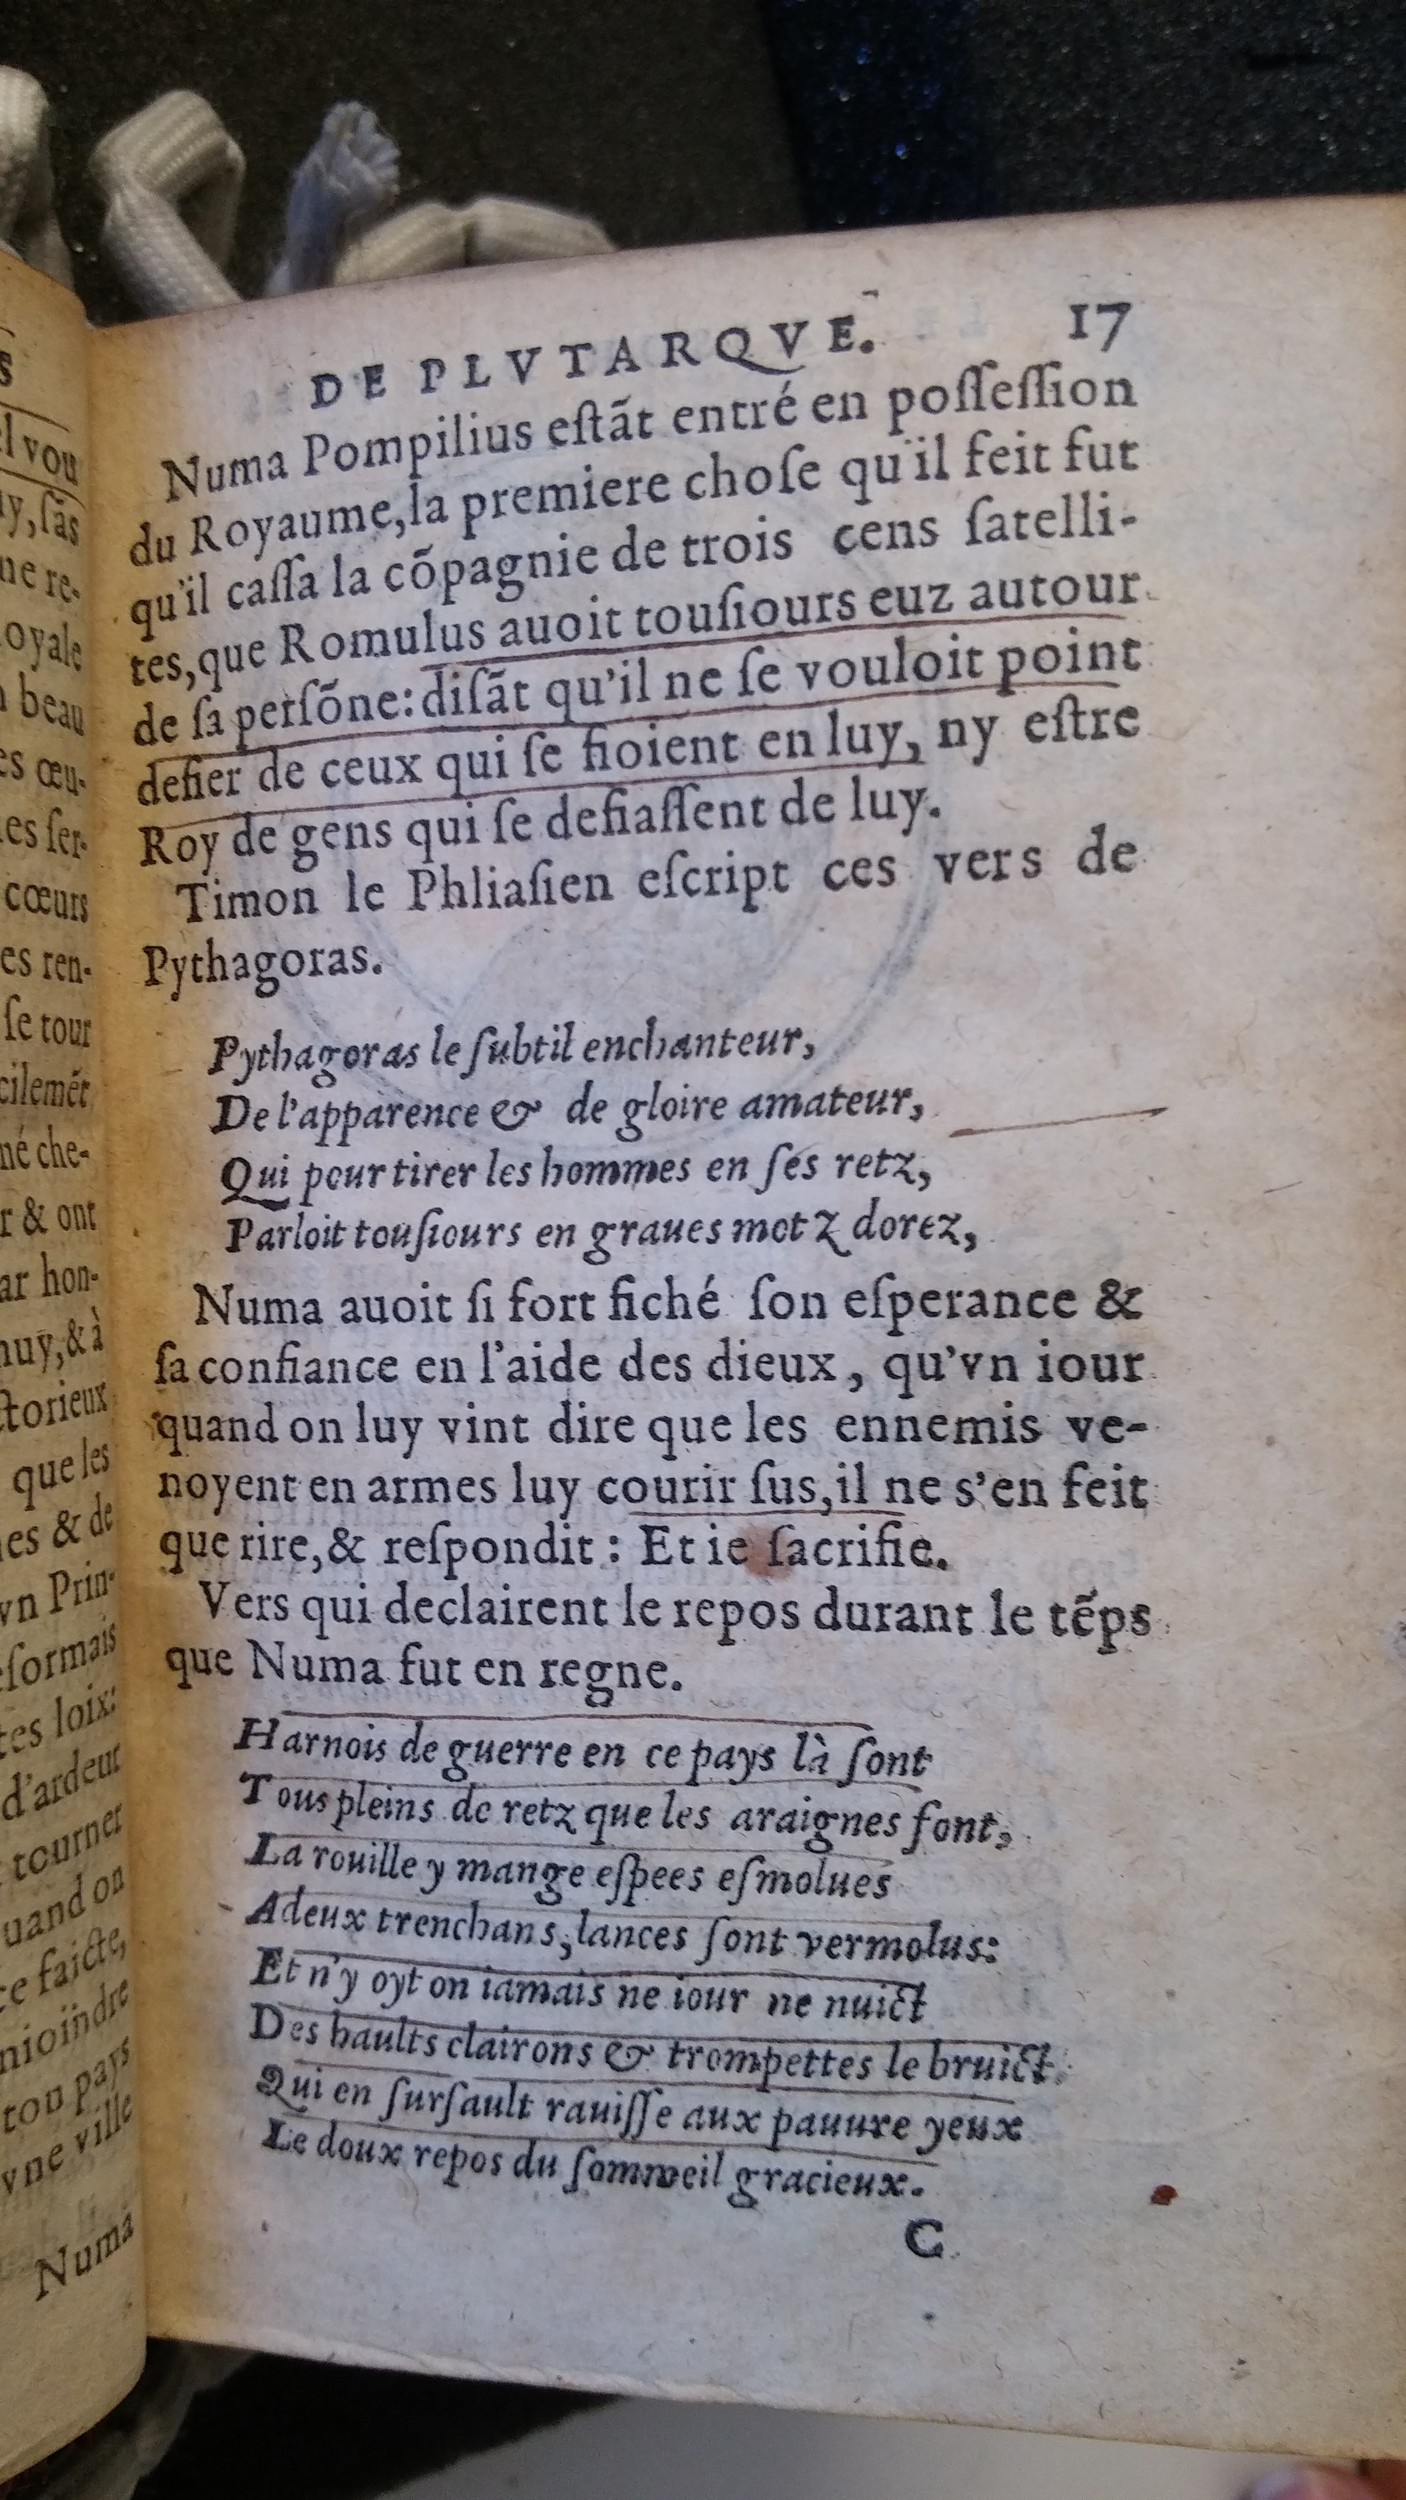 s
el vou
uy, ſãs
ne re-
oyale
n beau
es œu-
les ſer-
cœurs
es ren-
ſe tour
cilemẽt
né che-
r & ont
ar hon-
nuy, & à
ctorieux
que les
nes & de
vn Prin-
eſormais
tes loix:
d'ardeur
t tourner
uand on
ce faicte,
nioindre
ton pays
vne ville
Numa
DE PLVTARQVE. 17
Numa Pompilius eſtãt entré en poſſeſſion
du Royaume, la premiere choſe qu'il feit fut
qu'il caſſa la cõpagnie de trois cens ſatelli-
tes, que Romulus auoit touſiours euz autour
de ſa perſõne: diſãt qu'il ne ſe vouloit point
defier de ceux qui ſe fioient en luy, ny eſtre
Roy de gens qui ſe defiaſſent de luy.
Timon le Phliaſien eſcript ces vers de
Pythagoras.
Pythagoras le ſubtil enchanteur,
De l'apparence & de gloire amateur,
Qui pour tirer les hommes en ſes retz,
Parloit touſiours en graues motz dorez,
Numa auoit ſi fort fiché ſon eſperance &
ſa confiance en l'aide des dieux, qu'vn iour
quand on luy vint dire que les ennemis ve-
noyent en armes luy courir ſus, il ne s'en feit
que rire, & reſpondit: Et ie ſacrifie.
Vers qui declairent le repos durant le tẽps
que Numa fut en regne.
Harnois de guerre en ce pays là ſont
Tous pleins de retz que les araignes font,
La rouille y mange eſpees eſmolues
A deux trenchans, lances ſont vermolus:
Et n'y oyt on iamais ne iour ne nuict
Des haults clairons & trompettes le bruict
Qui en ſurſault rauiſſe aux pauure yeux
Le doux repos du ſommeil gracieux.
C